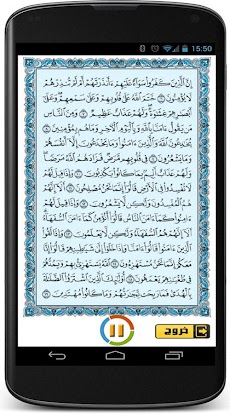 15:50
إِنَّ الَّذِينَ كَفَرُوا سَوَاءٌ عَلَيْهِمْ ءَأَنذَرْتَهُمْ أَمْ لَمْ تُنذِرْهُمْ
لَا يُؤْمِنُونَ ٦ خَتَمَ اللَّهُ عَلَىٰ قُلُوبِهِمْ وَعَلَىٰ سَمْعِهِمْ وَعَلَىٰ
أَبْصَٰرِهِمْ غِشَٰوَةٌ وَلَهُمْ عَذَابٌ عَظِيمٌ ٧ وَمِنَ النَّاسِ
مَن يَقُولُ ءَامَنَّا بِاللَّهِ وَبِالْيَوْمِ الْءَاخِرِ وَمَا هُم بِمُؤْمِنِينَ ٨
يُخَٰدِعُونَ اللَّهَ وَالَّذِينَ ءَامَنُوا وَمَا يَخْدَعُونَ إِلَّا أَنفُسَهُمْ
وَمَا يَشْعُرُونَ ٩ فِي قُلُوبِهِم مَّرَضٌ فَزَادَهُمُ اللَّهُ مَرَضًا
وَلَهُمْ عَذَابٌ أَلِيمٌ بِمَا كَانُوا يَكْذِبُونَ ١٠ وَإِذَا قِيلَ لَهُمْ
لَا تُفْسِدُوا فِي الْأَرْضِ قَالُوا إِنَّمَا نَحْنُ مُصْلِحُونَ ١١ أَلَا إِنَّهُمْ
هُمُ الْمُفْسِدُونَ وَلَٰكِن لَّا يَشْعُرُونَ ١٢ وَإِذَا قِيلَ لَهُمْ
ءَامِنُوا كَمَا ءَامَنَ النَّاسُ قَالُوا أَنُؤْمِنُ كَمَا ءَامَنَ السُّفَهَاءُ
أَلَا إِنَّهُمْ هُمُ السُّفَهَاءُ وَلَٰكِن لَّا يَعْلَمُونَ ١٣ وَإِذَا لَقُوا الَّذِينَ
ءَامَنُوا قَالُوا ءَامَنَّا وَإِذَا خَلَوْا إِلَىٰ شَيَٰطِينِهِمْ قَالُوا إِنَّا
مَعَكُمْ إِنَّمَا نَحْنُ مُسْتَهْزِءُونَ ١٤ اللَّهُ يَسْتَهْزِئُ بِهِمْ وَيَمُدُّهُمْ
فِي طُغْيَٰنِهِمْ يَعْمَهُونَ ١٥ أُولَٰئِكَ الَّذِينَ اشْتَرَوُا الضَّلَٰلَةَ
بِالْهُدَىٰ فَمَا رَبِحَت تِّجَٰرَتُهُمْ وَمَا كَانُوا مُهْتَدِينَ ١٦
خروج